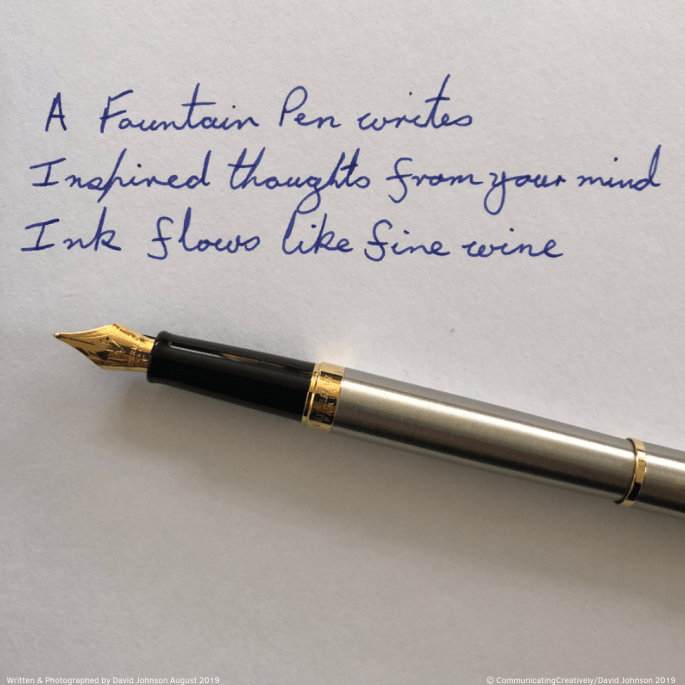 A Fountain Pen writes
Inspired thoughts from your mind
Ink flows like fine wine
Written & Photographed by David Johnson August 2019
© CommunicatingCreatively/David Johnson 2019